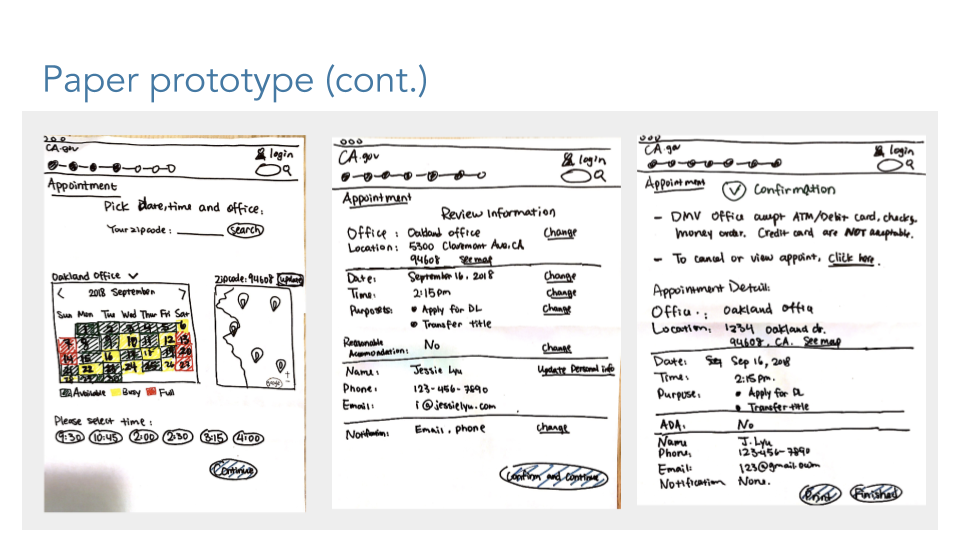 Paper prototype (cont.)
CA.gov
login
Appointment
Pick date, time and office:
Your zipcode: search
Oakland Office
zipcode: 94608 update
< 2018 September >
Sun Mon Tue Wed Thur Fri Sat
6
10 11 12 13
14 15 16 18 20
22 24 26
Available Busy Full
google
Please select time:
9:30 10:45 2:00 2:30 3:15 4:00
Continue
CA.gov
login
Appointment
Review Information
Office: Oakland office Change
Location: 5300 Claremont Ave, CA
94608 See map
Date: September 16, 2018 Change
Time: 2:15pm Change
Purposes: • Apply for DL Change
• Transfer title
Reasonable
Accomondation: No Change
Name: Jessie Lyu Update Personal info
Phone: 123-456-7890
Email: i@jessielyu.com
Notification: Email, phone Change
Confirm and continue
CA.gov
login
Appointment
Confirmation
- DMV Office accept ATM/Debit card, checks,
money order. Credit card are NOT acceptable.
- To cancel or view appoint, click here.
Appointment Detail:
Office: oakland office
Location: 1234 oakland dr.
94608, CA. See map
Date: Sep 16, 2018
Time: 2:15pm.
Purpose: • Apply for DL
• Transfer title
ADA: No
Name J. Lyu
Phone: 123-456-7890
Email: 123@gmail.com
Notification None.
Print Finished